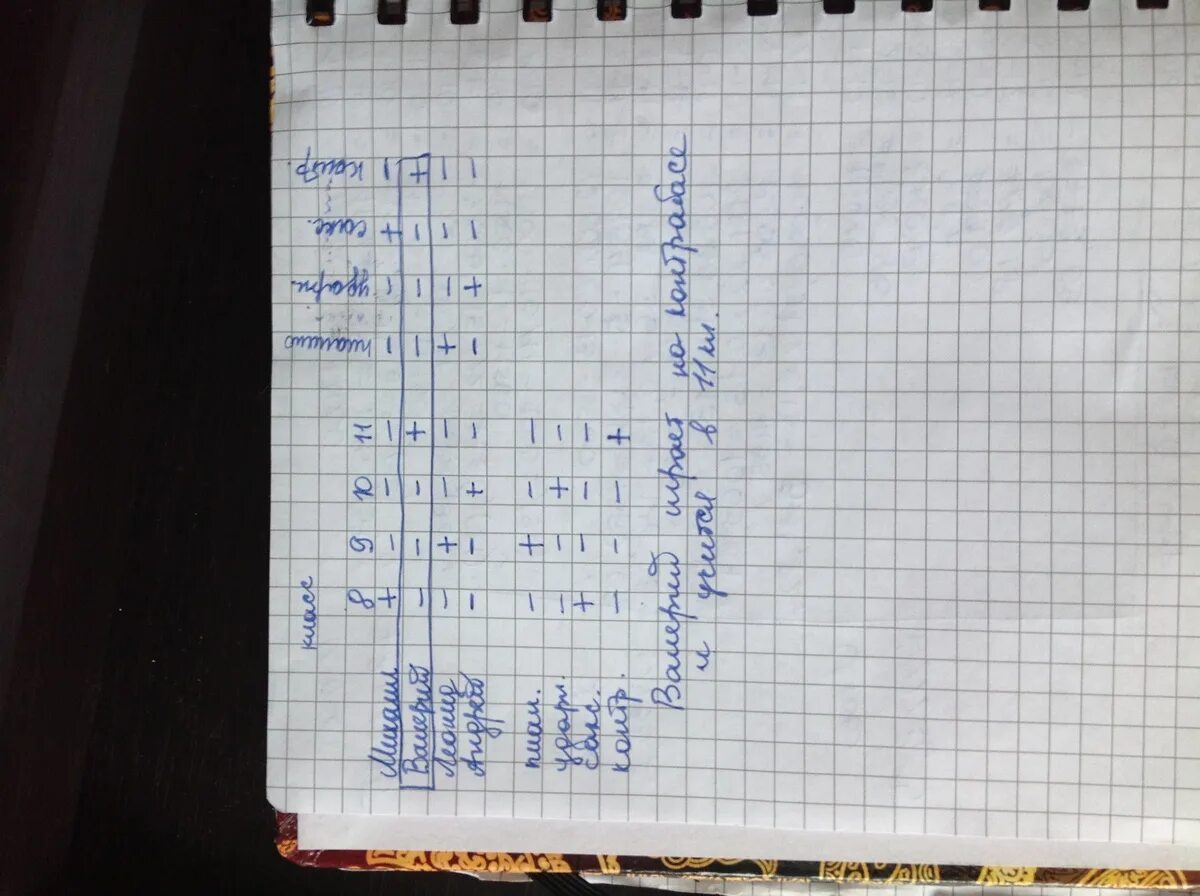 класс
8 9 10 11 пианино ударн. сакс. контр.
Михаил + - - - - - + -
Валерий - - - + - - - +
Леонид - + - - + - - -
Андрей - - + - - + - -
пиан. - + - -
ударн. - - + -
сакс. + - - -
контр. - - - +
Валерий играет на контрабасе
и учится в 11 кл.